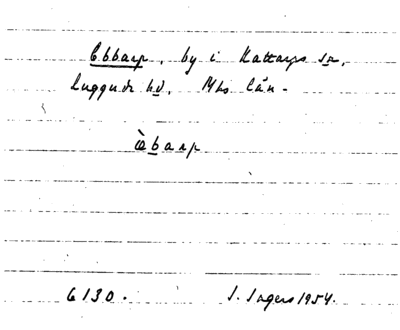 Ebbarp, by i Kattarps sn,
Luggude hd. Mhs län.
èbarp
6130. S. Ingers 1954.